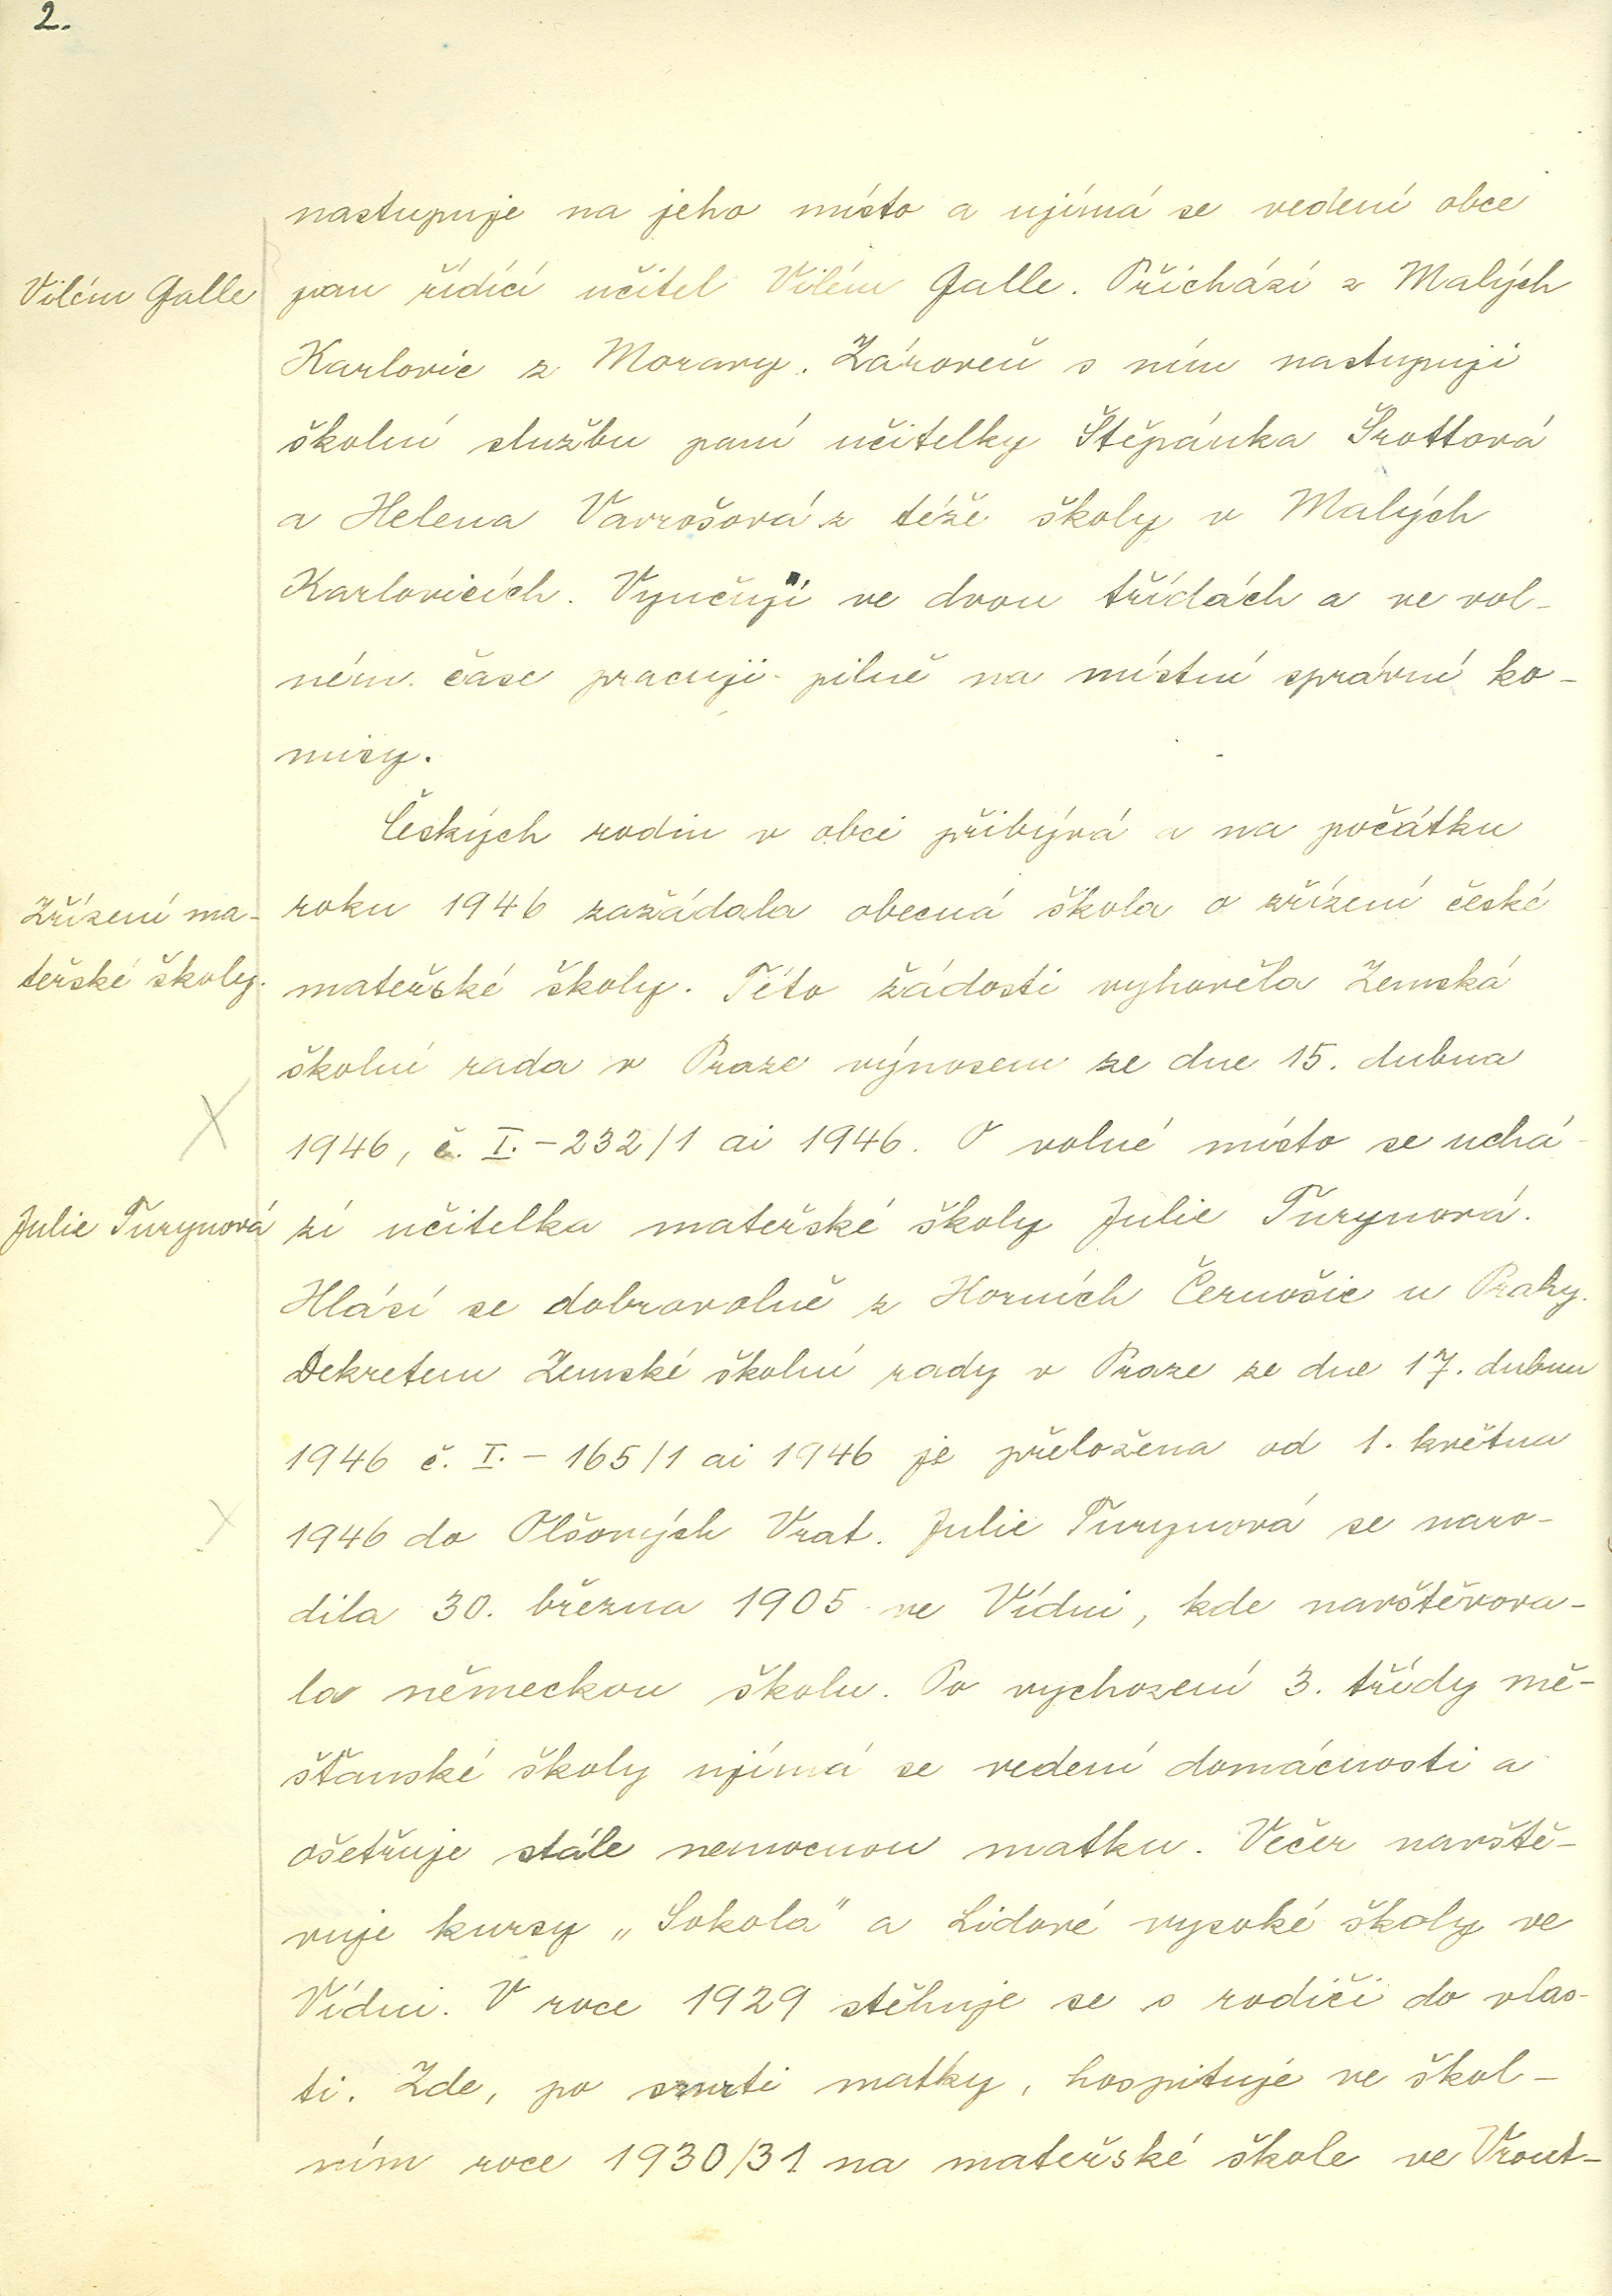 2.
nastupuje na jeho místo a ujímá se vedení obce
Vilém Galle
pan řídící učitel Vilém Galle. Přichází z Malých
Karlovic z Moravy. Zároveň s ním nastupuji
školní službu paní učitelky Štěpánka Šrottová
a Helena Vavrošová z téže školy v Malých
Karlovicích. Vyučují ve dvou třídách a ve vol-
ném čase pracuji pilně na místní správní ko-
misy.
Českých rodin v obci přibývá a na počátku
Zřízení ma-
roku 1946 zažádala obecná škola o zřízení české
teřské školy.
mateřské školy. Této žádosti vyhověla Zemská
školní rada v Praze výnosem ze dne 15. dubna
1946, č. I. - 232/1 ai 1946. O volné místo se uchá-
Julie Turynová
zí učitelka mateřské školy Julie Turynová.
Hlásí se dobrovolně z Horních Černošic u Prahy.
Dekretem Zemské školní rady v Praze ze dne 17. dubna
1946 č. I. - 165/1 ai 1946 je přeložena od 1. května
1946 do Olšových Vrat. Julie Turynová se naro-
dila 30. března 1905 ve Vídni, kde navštěvova-
la německou školu. Po vychození 3. třídy mě-
šťanské školy ujímá se vedení domácnosti a
ošetřuje stále nemocnou matku. Večer navště-
vuje kursy „Sokola" a Lidové vysoké školy ve
Vídni. V roce 1929 stěhuje se s rodiči do vlas-
ti. Zde, po smrti matky, hospituje ve škol-
ním roce 1930/31 na mateřské škole ve Vrout-